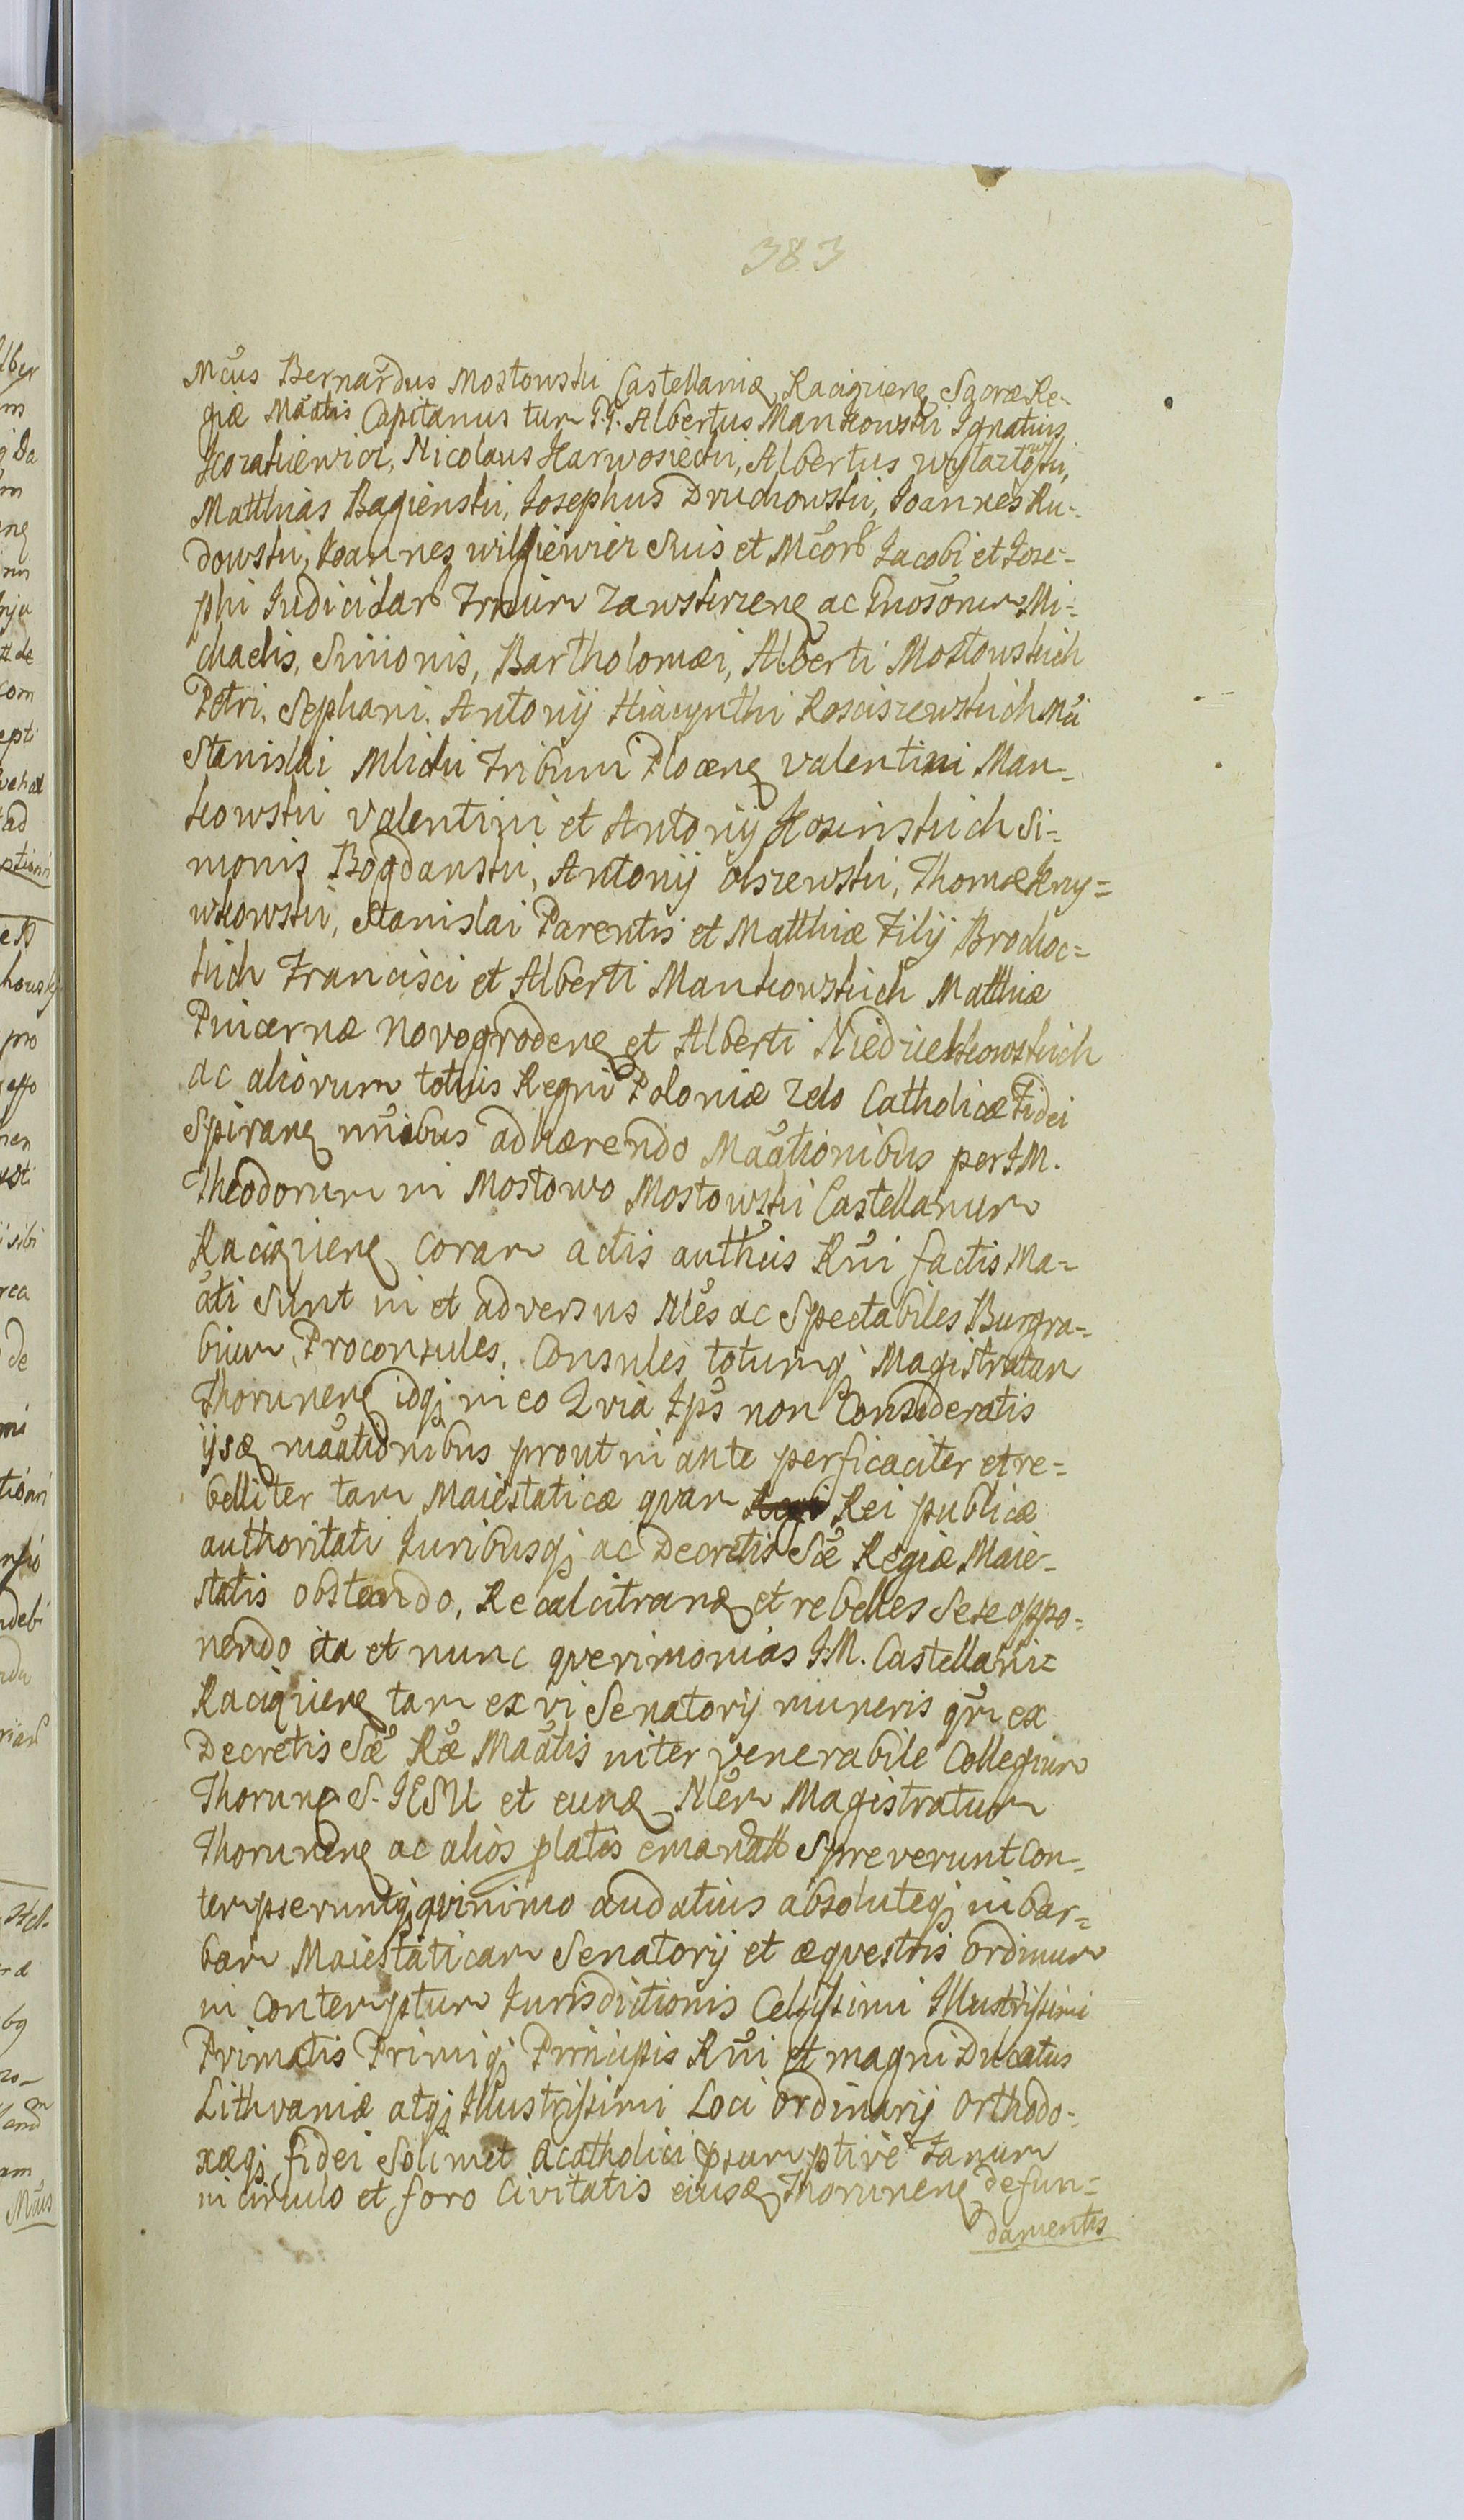 383
Mcus Bernardus Mostowski Castellaniæ Raciązieneg Sacræ Re-
giæ Mäatis Capitanus tum P.P. Albertus Mankowski Ignatius
Korakiewicz, Nicolaus Karwosiecki, Albertus
Matthias Bagienski, Josephus Druchowski, Joannes Ru-
dowski, Joannes Suis et Mcor Jacobi et Jose-
phi Judicidar Zawskrzeneg ac Gnosorum Mi-
chaelis, Simonis, Bartholomæi, Alberti Mostowskich
Petri, Sephani, Antonij Hiacynthi Rosciszewskich Mci
Stanislai Mlicki Tribuni Ploceneg Valentini Man-
kowski Valentini et Antonij Kosinskich Si-
monis Bogdanski, Antonij Olszewski, Thomæ Kny-
wkowski, Stanislai Parentis et Matthiæ Filij Brochoc-
kich Francisci et Alberti Mankowskich Matthiæ
Pincernæ Novogrodeneg et Alberti
ac aliorum totius Regni Poloniæ Zelo Catholicæ Fidei
Spiraneg nnibus adhærendo Mäationibus per I.M.
Theodorum in Mostowo Mostowski Castellanum
Raciązieneg Coram actis autheis Rni factis Ma-
äti Sunt in et adversus Nles ac Spectabiles Burgra-
bium, Proconsules, Consules totumq; Magistratum
Thoruneneg idq; in eo Qvia Ips non Consideratis
ijsq mäationibus prout in ante perficaciter et re-
belliter tam Maiestaticæ qvam Rei publicæ
authoritati Juribusq; ac Decretis Sæ Regiæ Maie-
statis obstando, Recalcitraneg et rebelles Sese oppo-
nendo ita et nunc qverimonias I.M. Castellani
Raciązieneg tam ex vi Senatorij muneris qm ex
Decretis Sæ Ræ Mäatis inter venerabile Collegium
Thoruneg S. JESU et eunq Nlem Magistratum
Thoruneneg ac alios platis emanatt Spreverunt Con-
tempseruntq; qvinimo audatius absoluteq; in bar-
bam Maiestaticam Senatorij et æqvestris Ordinum
in Contemptum Jurisdictionis Celsissimi Illustrissimi
Primatis Primiq; Principis Rni et magni Ducatus
Lithvaniæ atq; Illustrissimi Loci Ordinarij Orthodo-
xæq; fidei Solimet Acatholici psumptive Fanum
in circulo et foro Civitatis eiusq Thoruneneg defun-
damentis